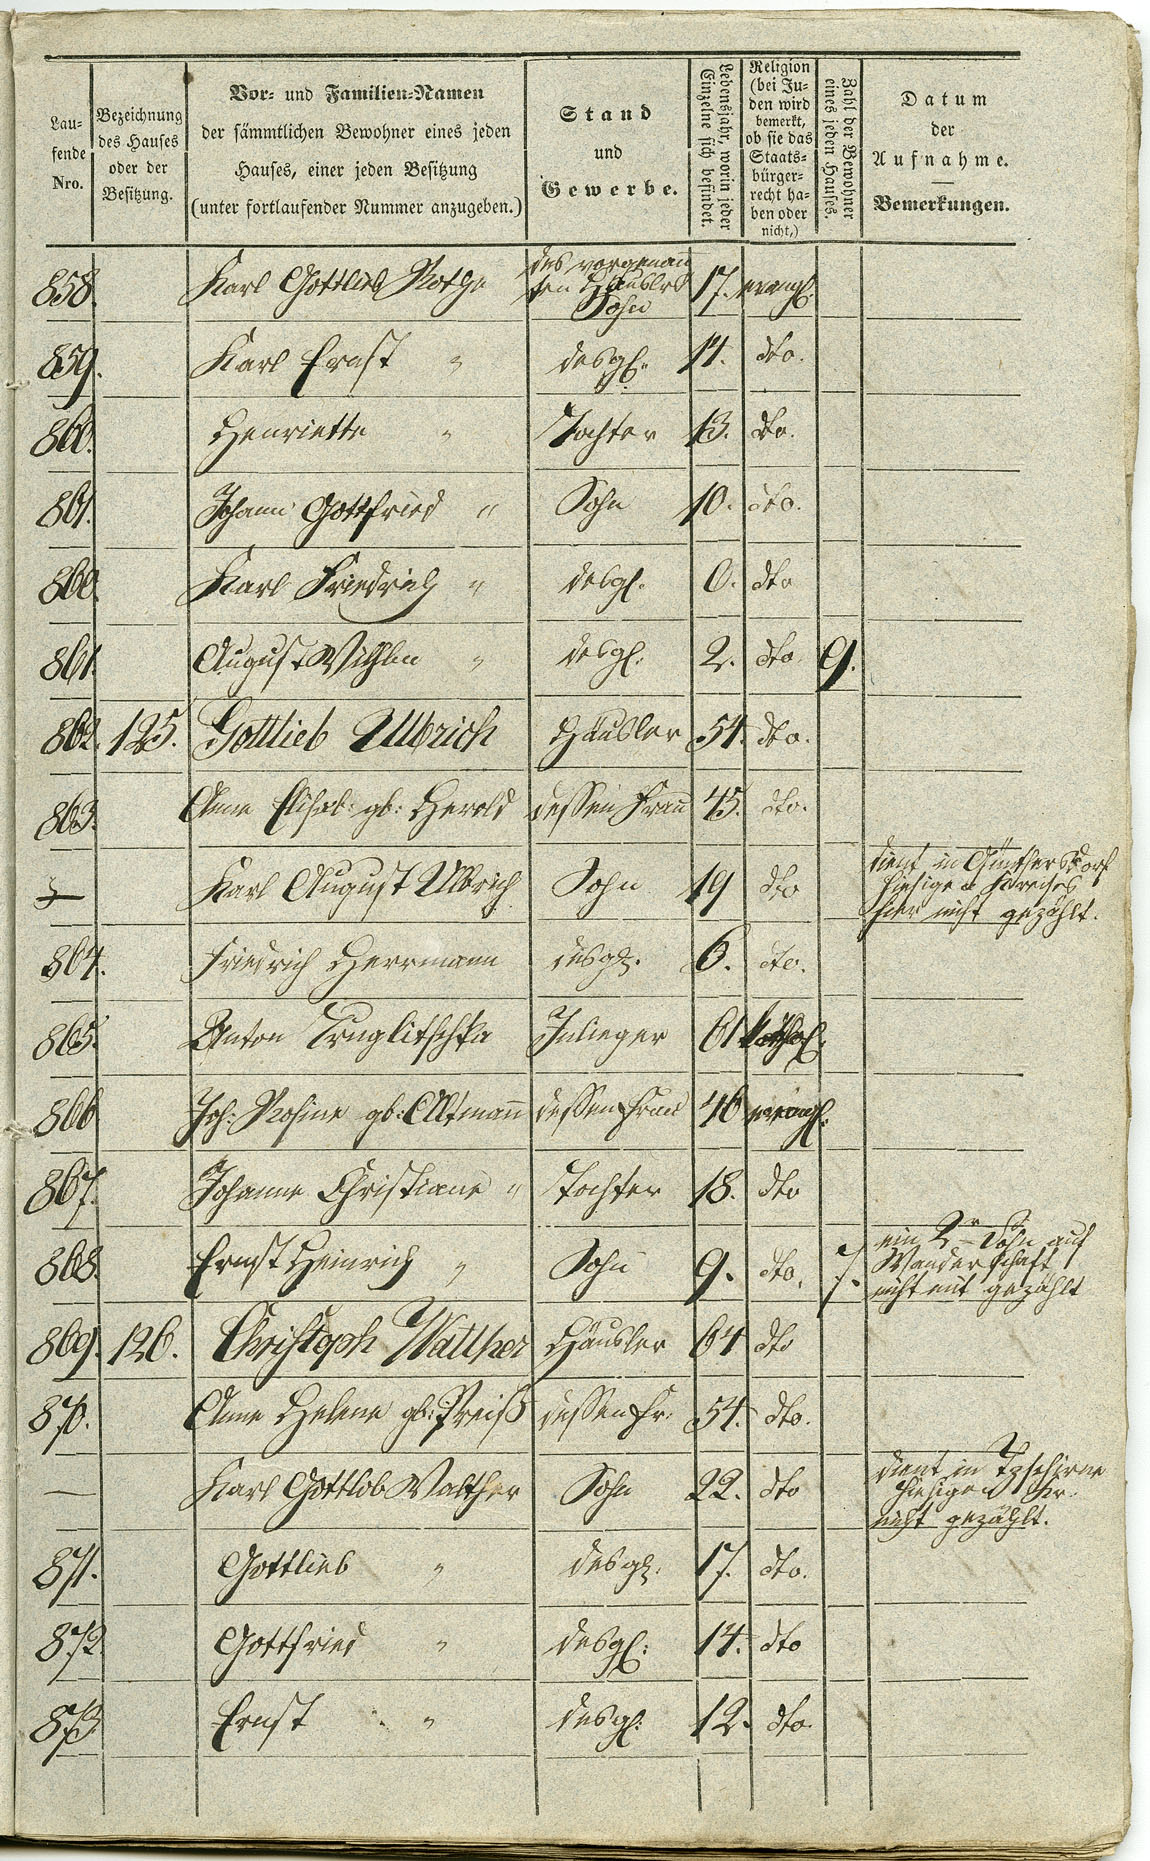 Lau-
fende
Nro.
Bezeichnung
des Hauses
oder der
Besitzung.
Vor- und Familien-Namen
der sämmtlichen Bewohner eines jeden
Hauses, einer jeden Besitzung
(unter fortlaufender Nummer anzugeben.)
Stand
und
Gewerbe.
Lebensjahr, worin jeder
Einzelne sich befindet.
Religion
(bei Ju-
den wird
bemerkt,
ob sie das
Staats-
bürger-
recht ha-
ben oder
nicht,)
Zahl der Bewohner
eines jeden Hauses.
Datum
der
Aufnahme.
—
Bemerkungen.
des vorgenann
ten Häuslers
858. Karl Gottlieb Rothe Sohn 17. evangl.
859. Karl Ernst " desgl. 14. dto.
860. Henriette " Tochter 13. dto.
861. Johann Gottfried " Sohn 10. dto.
860. Karl Friedrich " desgl. 6. dto
861. August Wilhlm " desgl. 2. dto. 9.
862. 125. Gottlieb Ulbrich Häusler 54. dto.
863. Anne Elisab: gb: Herold dessen Frau 45. dto.
— Karl August Ulbrich Sohn 19 dto
dient in Günthersdorf
hiesigen Kreises
hier nicht gezählt.
864. Friedrich Herrmann desgl. 6. dto.
865. Anton Inlieger 61 kathol.
866 Joh: Rosine gb: Altmann dessen Frau 46 evangl.
867. Johanne Christiane " Tochter 18. dto
868. Ernst Heinrich " Sohn 9. dto. 7.
ein 2r Sohn auf
Wanderschaft
nicht mit gezählt
869. 126. Christoph Walther Häusler 64 dto
870. Anne Helene gb: Preiß dessen Fr. 54. dto.
— Karl Gottlob Walther Sohn 22. dto
dient in Tzschirne
hiesigen Kr.
nicht gezählt.
871. Gottlieb " desgl. 17. dto.
872. Gottfried " desgl: 14. dto
873 Ernst " desgl: 12. dto.